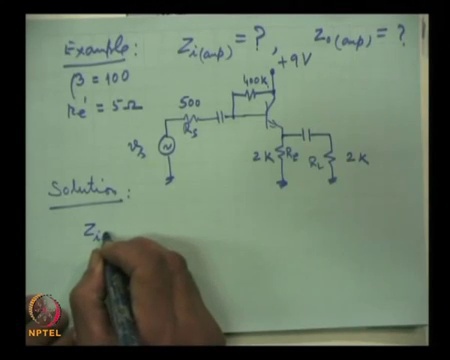 Example: Zi(amp) = ?, Zo(amp) = ?
β = 100
re' = 5Ω
+9V
400K
500
Rs
vs
2K RE
RL 2K
Solution:
Zi
NPTEL